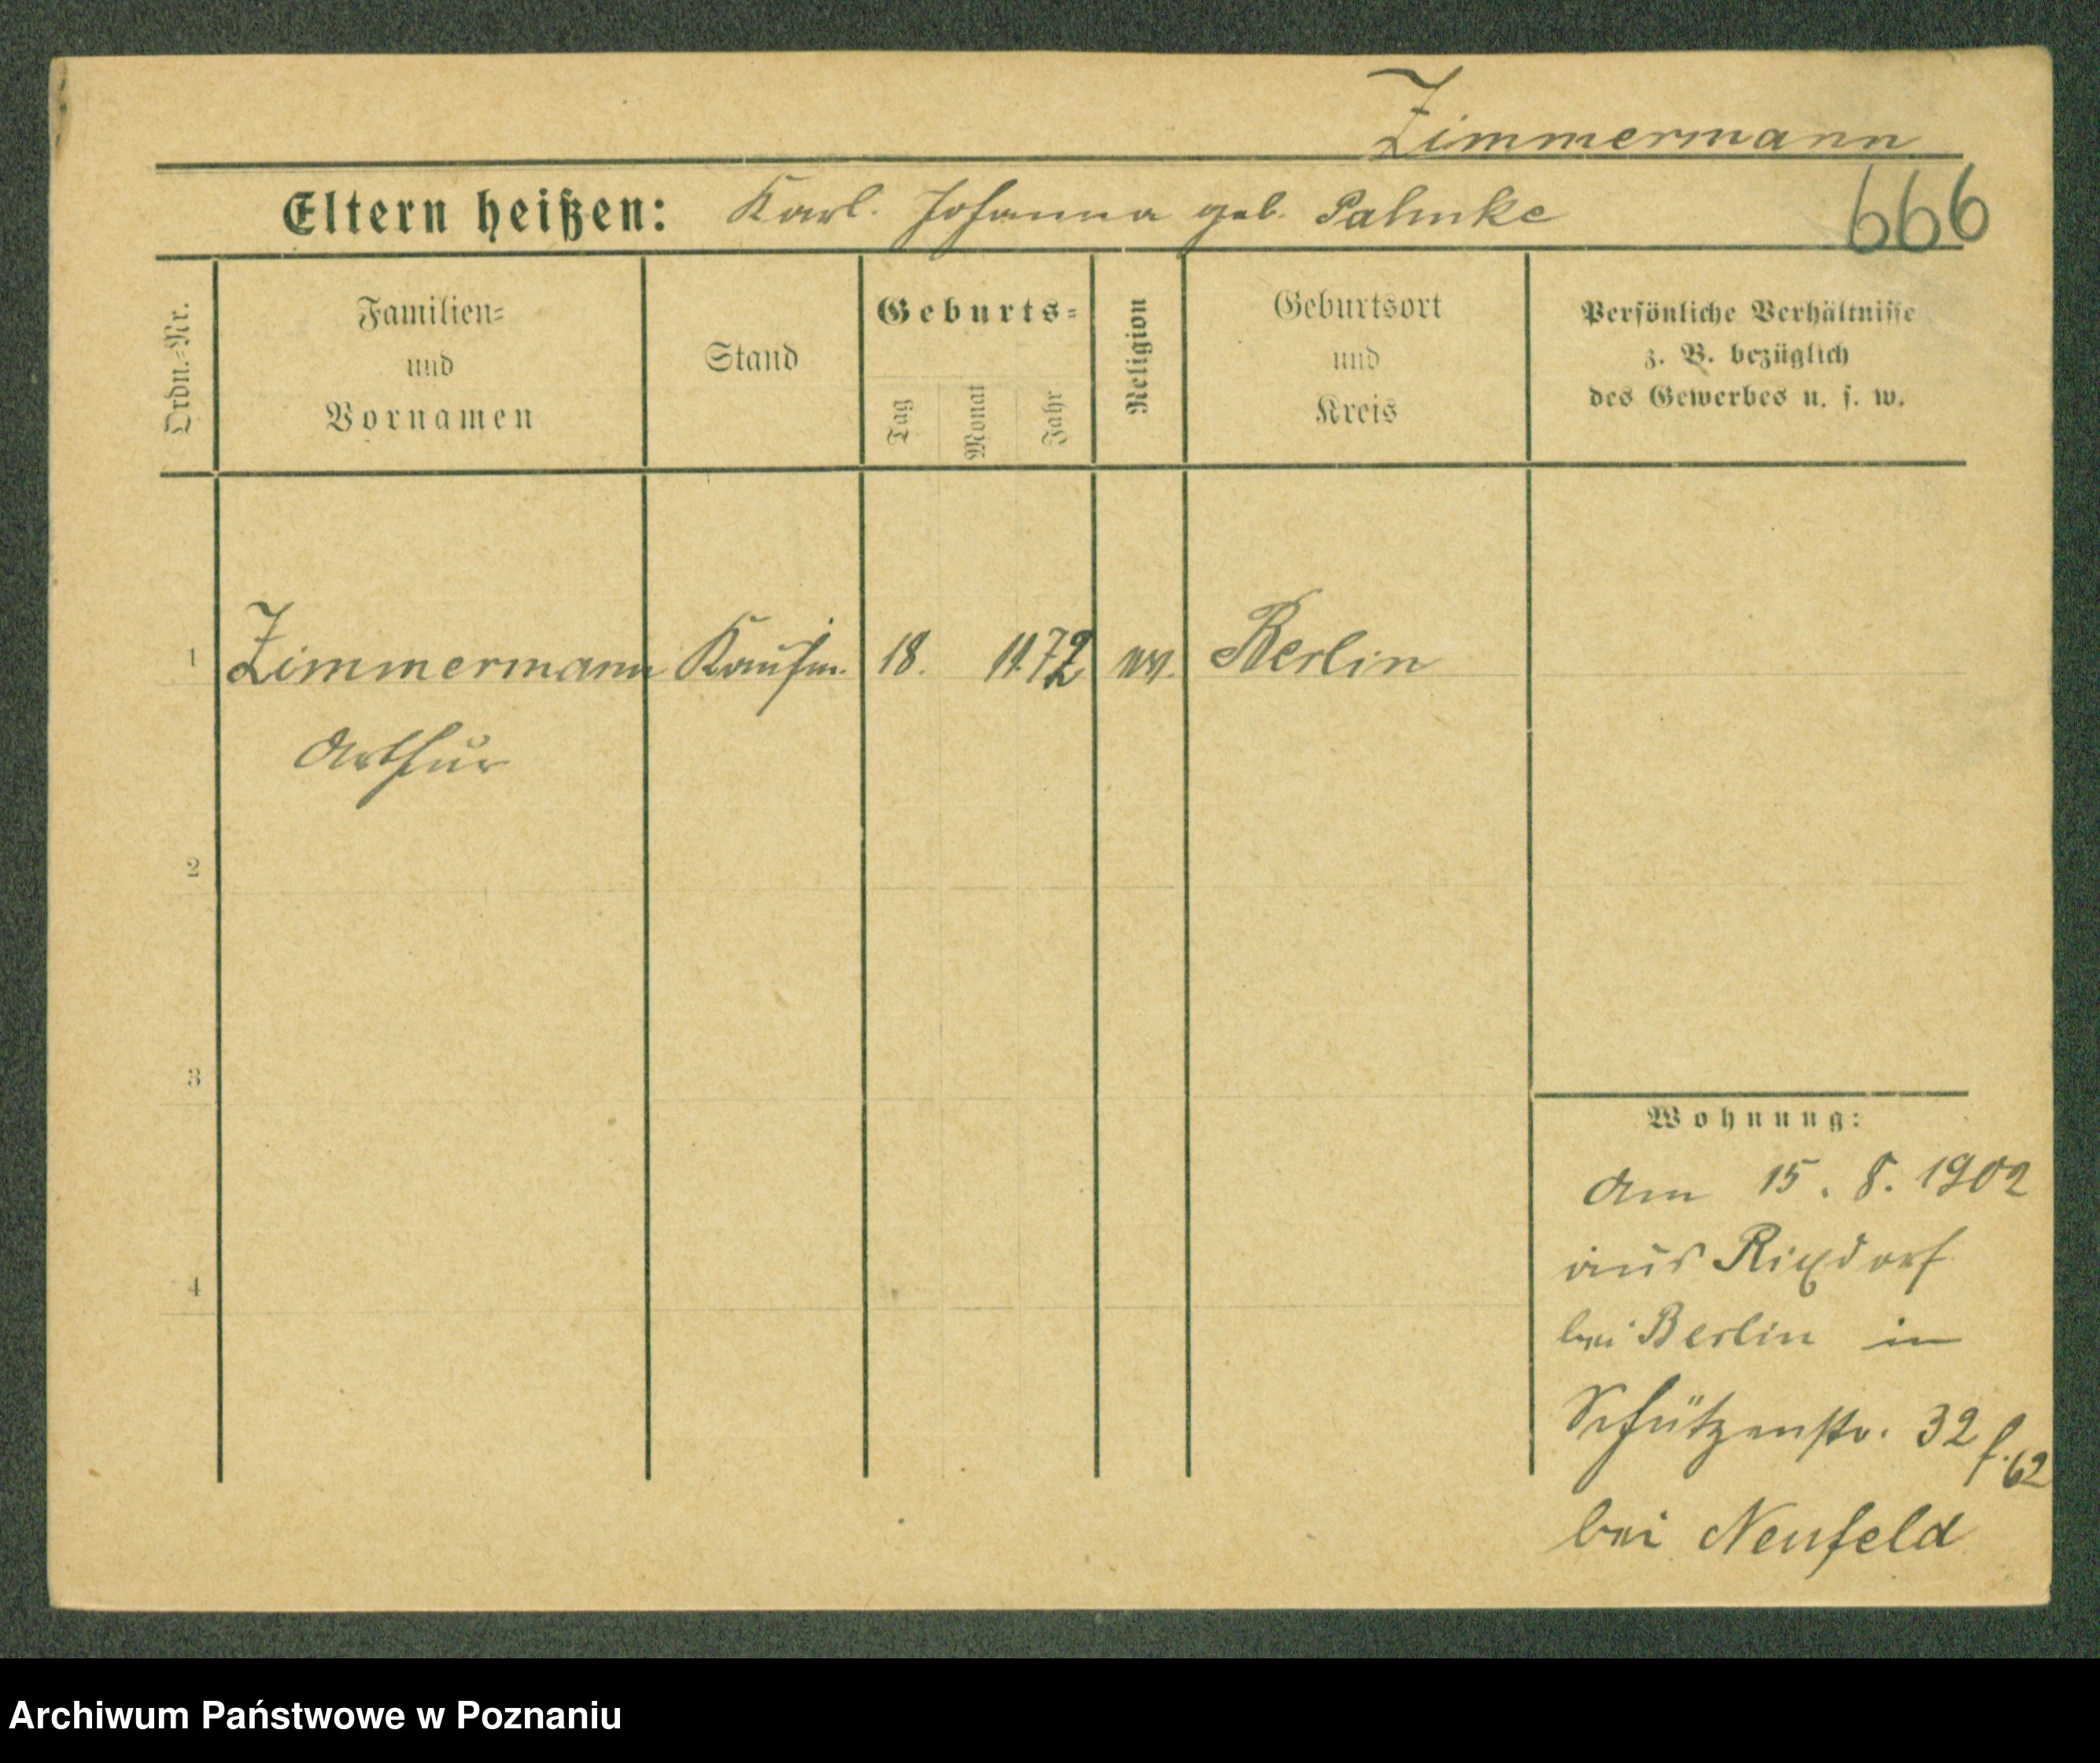 Zimmermann
Eltern heißen: Karl. Johanna geb. Pahnke
666
Ordn.-Nr.
Familien-
und
Vornamen
Stand
Geburts-
Tag
Monat
Jahr
Religion
Geburtsort
und
Kreis
Persönliche Verhältnisse
z. B. bezüglich
des Gewerbes u. s. w.
1 Zimmermann Kaufm. 18. 11. 72 ev. Berlin
Arthur
2
3
4
Wohnung:
Am 15. 8. 1902
aus Rixdorf
bei Berlin in
Schützenstr. 32
bei Neufeld
Archiwum Państwowe w Poznaniu